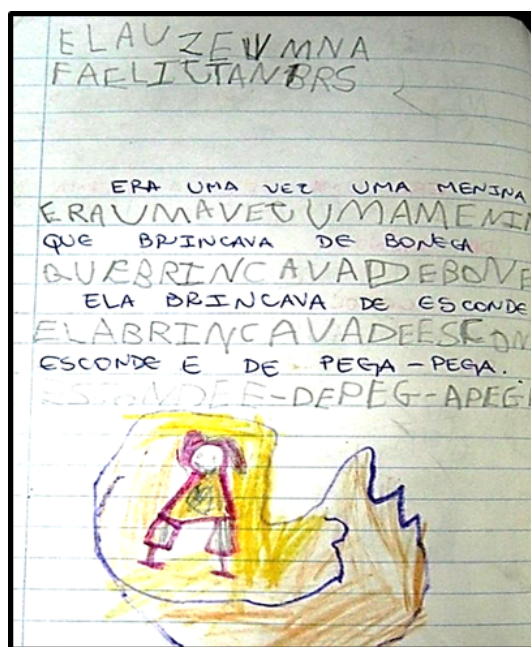 ELAUZEVMNA
FAELICTANBRS
ERA UMA VEZ UMA MENINA
ERAUMAVEZUMAMENIN
QUE BRINCAVA DE BONECA
QUEBRINCAVADDEBONE
ELA BRINCAVA DE ESCONDE
ELABRINCAVADEESCON
ESCONDE E DE PEGA-PEGA.
ESCONDEE-DEPEG-APEG